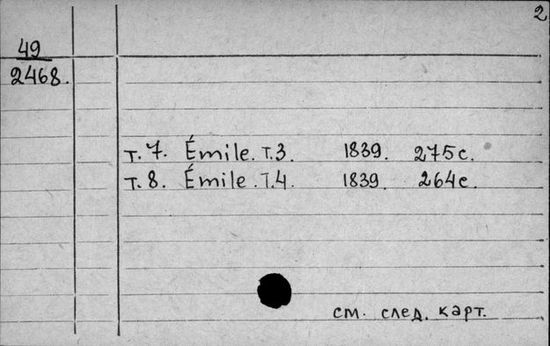 2
49
2468.
т. 7. Émile. T.3. 1839. 275с.
т. 8. Émile. T.4. 1839. 264с.
см. след. карт.